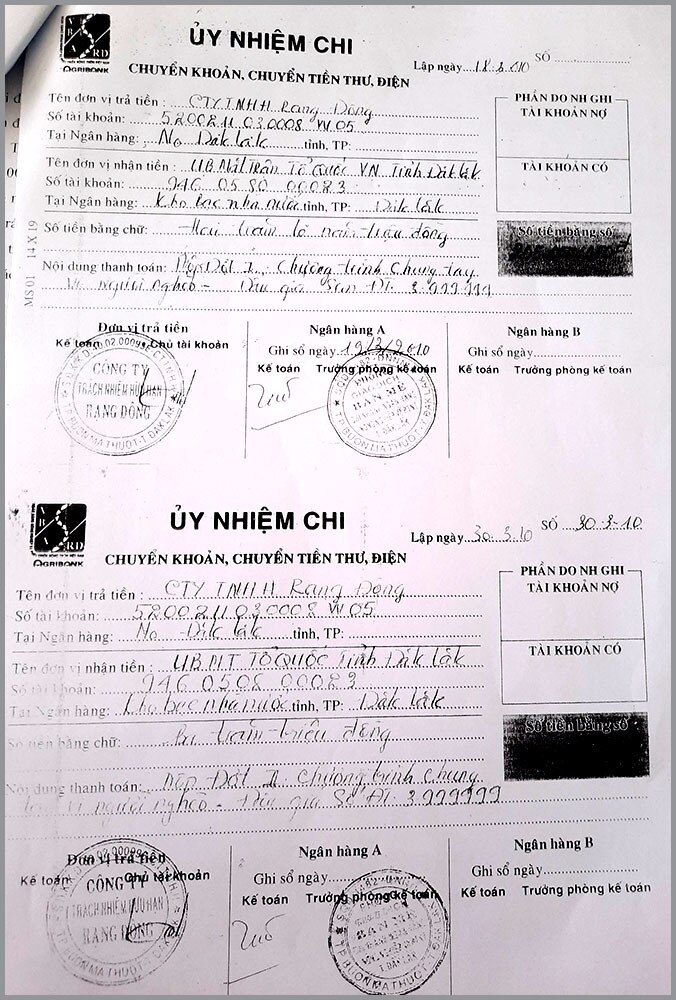 AGRIBANK
ỦY NHIỆM CHI
CHUYỂN KHOẢN, CHUYỂN TIỀN THƯ, ĐIỆN
SỐ
Lập ngày 18.3.010
PHẦN DO NH GHI
TÀI KHOẢN NỢ
TÀI KHOẢN CÓ
Số tiền bằng số
Tên đơn vị trả tiền : CTY TNHH Rạng Đông
Số tài khoản: 5200211030008 W05
Tại Ngân hàng: No Đăk lăk tỉnh, TP:
Tên đơn vị nhận tiền : UB Mặt Trận Tổ Quốc VN Tỉnh Đăklăk
Số tài khoản: 946 05 80 00083
Tại Ngân hàng: Kho bạc nhà nước tỉnh, TP: Đăk lăk
Số tiền bằng chữ: Hai trăm lẻ năm triệu đồng
Nội dung thanh toán: Nộp Đợt I. Chương trình Chung tay
Vì người nghèo - Đấu giá Số ĐT 3.999999
MS 01 14 X 19
Đơn vị trả tiền
Kế toán Chủ tài khoản
CÔNG TY
TRÁCH NHIỆM HỮU HẠN
RẠNG ĐÔNG
Ngân hàng A
Ghi sổ ngày 19/3/2010
Kế toán Trưởng phòng kế toán
BAN MÊ
Ngân hàng B
Kế toán Trưởng phòng kế toán
AGRIBANK
ỦY NHIỆM CHI
CHUYỂN KHOẢN, CHUYỂN TIỀN THƯ, ĐIỆN
SỐ 30-3-10
Lập ngày 30.3.10
PHẦN DO NH GHI
TÀI KHOẢN NỢ
TÀI KHOẢN CÓ
Số tiền bằng số
Tên đơn vị trả tiền : CTY TNHH Rạng Đông
Số tài khoản: 5200211030008 W05
Tại Ngân hàng: No Đăk lăk tỉnh, TP:
Tên đơn vị nhận tiền : UBMT Tổ Quốc Tỉnh Đăk lăk
Số tài khoản: 946 0508 00083
Tại Ngân hàng: Kho bạc nhà nước tỉnh, TP: Đăk lăk
Số tiền bằng chữ: trăm triệu đồng
Nội dung thanh toán: Nộp Đợt II. Chương trình Chung
tay vì người nghèo - Đấu giá Số ĐT 3999999
Đơn vị trả tiền
Kế toán Chủ tài khoản
CÔNG TY
TRÁCH NHIỆM HỮU HẠN
RẠNG ĐÔNG
Ngân hàng A
Ghi sổ ngày
Kế toán Trưởng phòng kế toán
BAN MÊ
Ngân hàng B
Ghi sổ ngày
Kế toán Trưởng phòng kế toán